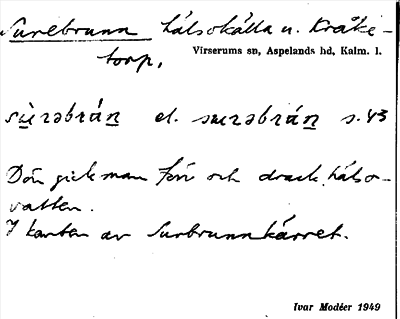 Surebrunn hälsokälla u. Kråke-
torp.
Virserums sn, Aspelands hd, Kalm. l.
sùrəbrán el. surəbrán s. 43
Dän gick man förr och drack hälso-
vatten.
I kanten av Surbrunnkärret.
Ivar Modéer 1949